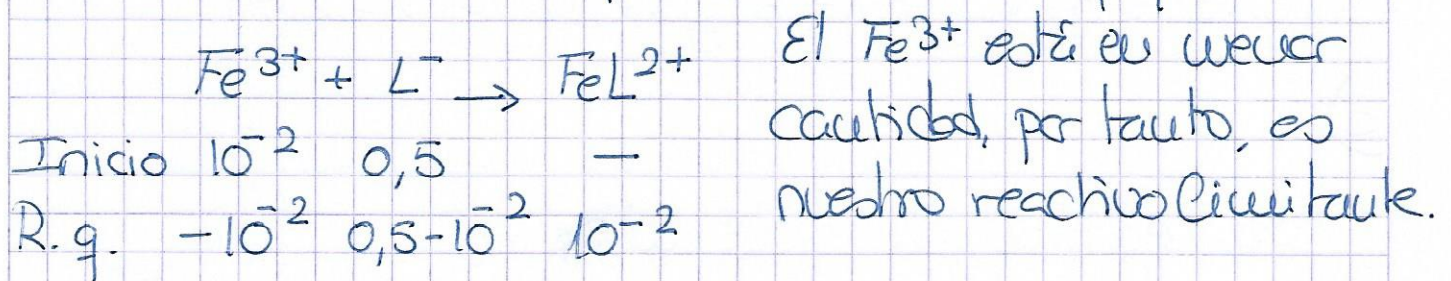 Fe³⁺ + L⁻ → FeL²⁺
Inicio 10⁻² 0,5 —
R.q. -10⁻² 0,5-10⁻² 10⁻²
El Fe³⁺ está en menor
cantidad, por tanto, es
nuestro reactivo limitante.